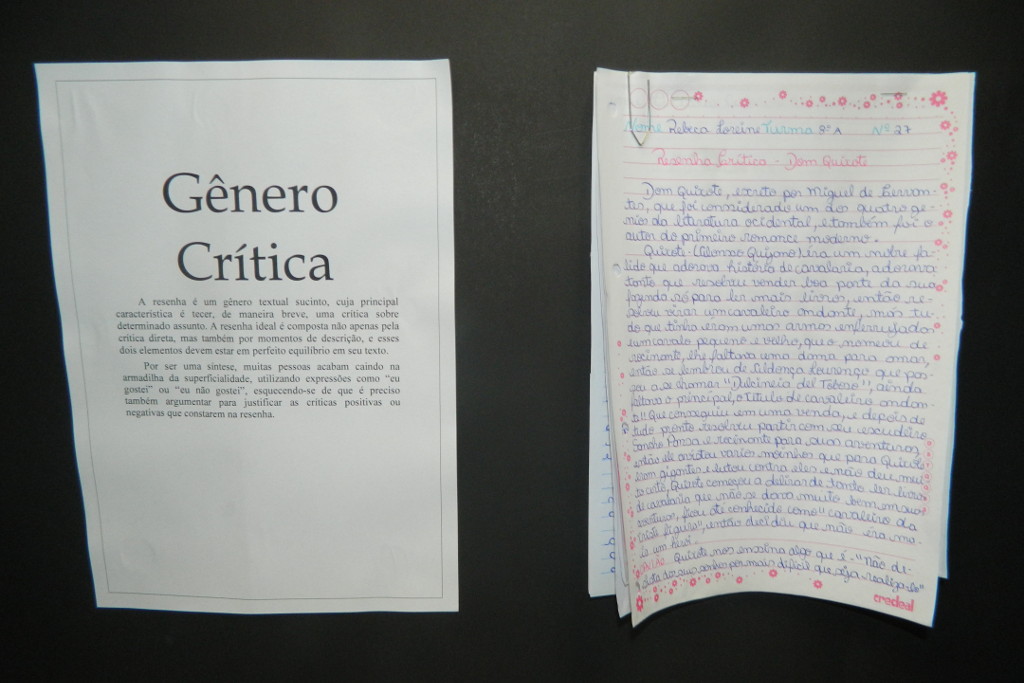 Gênero
Crítica
A resenha é um gênero textual sucinto, cuja principal
característica é tecer, de maneira breve, uma crítica sobre
determinado assunto. A resenha ideal é composta não apenas pela
crítica direta, mas também por momentos de descrição, e esses
dois elementos devem estar em perfeito equilíbrio em seu texto.
Por ser uma síntese, muitas pessoas acabam caindo na
armadilha da superficialidade, utilizando expressões como “eu
gostei” ou “eu não gostei”, esquecendo-se de que é preciso
também argumentar para justificar as críticas positivas ou
negativas que constarem na resenha.
Nome Rebeca Loreine Turma 8º A Nº 27
Resenha Crítica - Dom Quixote
Dom Quixote, escrito por Miguel de Cervan-
tes, que foi considerado um dos quatro gê-
nios da literatura ocidental, e também foi o
autor do primeiro romance moderno.
Quixote - (Alonso Quijano) éra um nobre fa-
lido que adorava história de cavalaria, adorava
tanto que resolveu vender boa parte da sua
fazenda só para ler mais livros, então re-
solveu virar um cavaleiro andante, mas tu-
do que tinha eram umas armas enferrujadas
e um cavalo pequeno e velho, que o nomeou de
rocinante, lhe faltava uma dama para amar,
então se lembrou de Aldonça Lourenço que pas-
sou a se chamar "Dulcineia del Toboso", ainda
faltava o principal, o título de cavaleiro andan-
te!! Que conseguiu em uma venda, e depois de
tudo pronto resolveu partir com seu escudeiro
Sancho Pansa e rocinante para suas aventuras,
então ele avistou varios moinhos que para Quixote
eram gigantes e lutou contra eles e não deu mui-
to certo, Quixote começou a delirar de tanto ler livro
de cavalaria que não se dava muito bem em suas
aventuras, ficou até conhecido como "cavaleiro da
triste figura", então decidiu que não éra ma-
is um herói.
Quixote nos ensina algo que é - "Não de-
sista dos seus sonhos por mais difícil que seja realiza-lo"
credeal